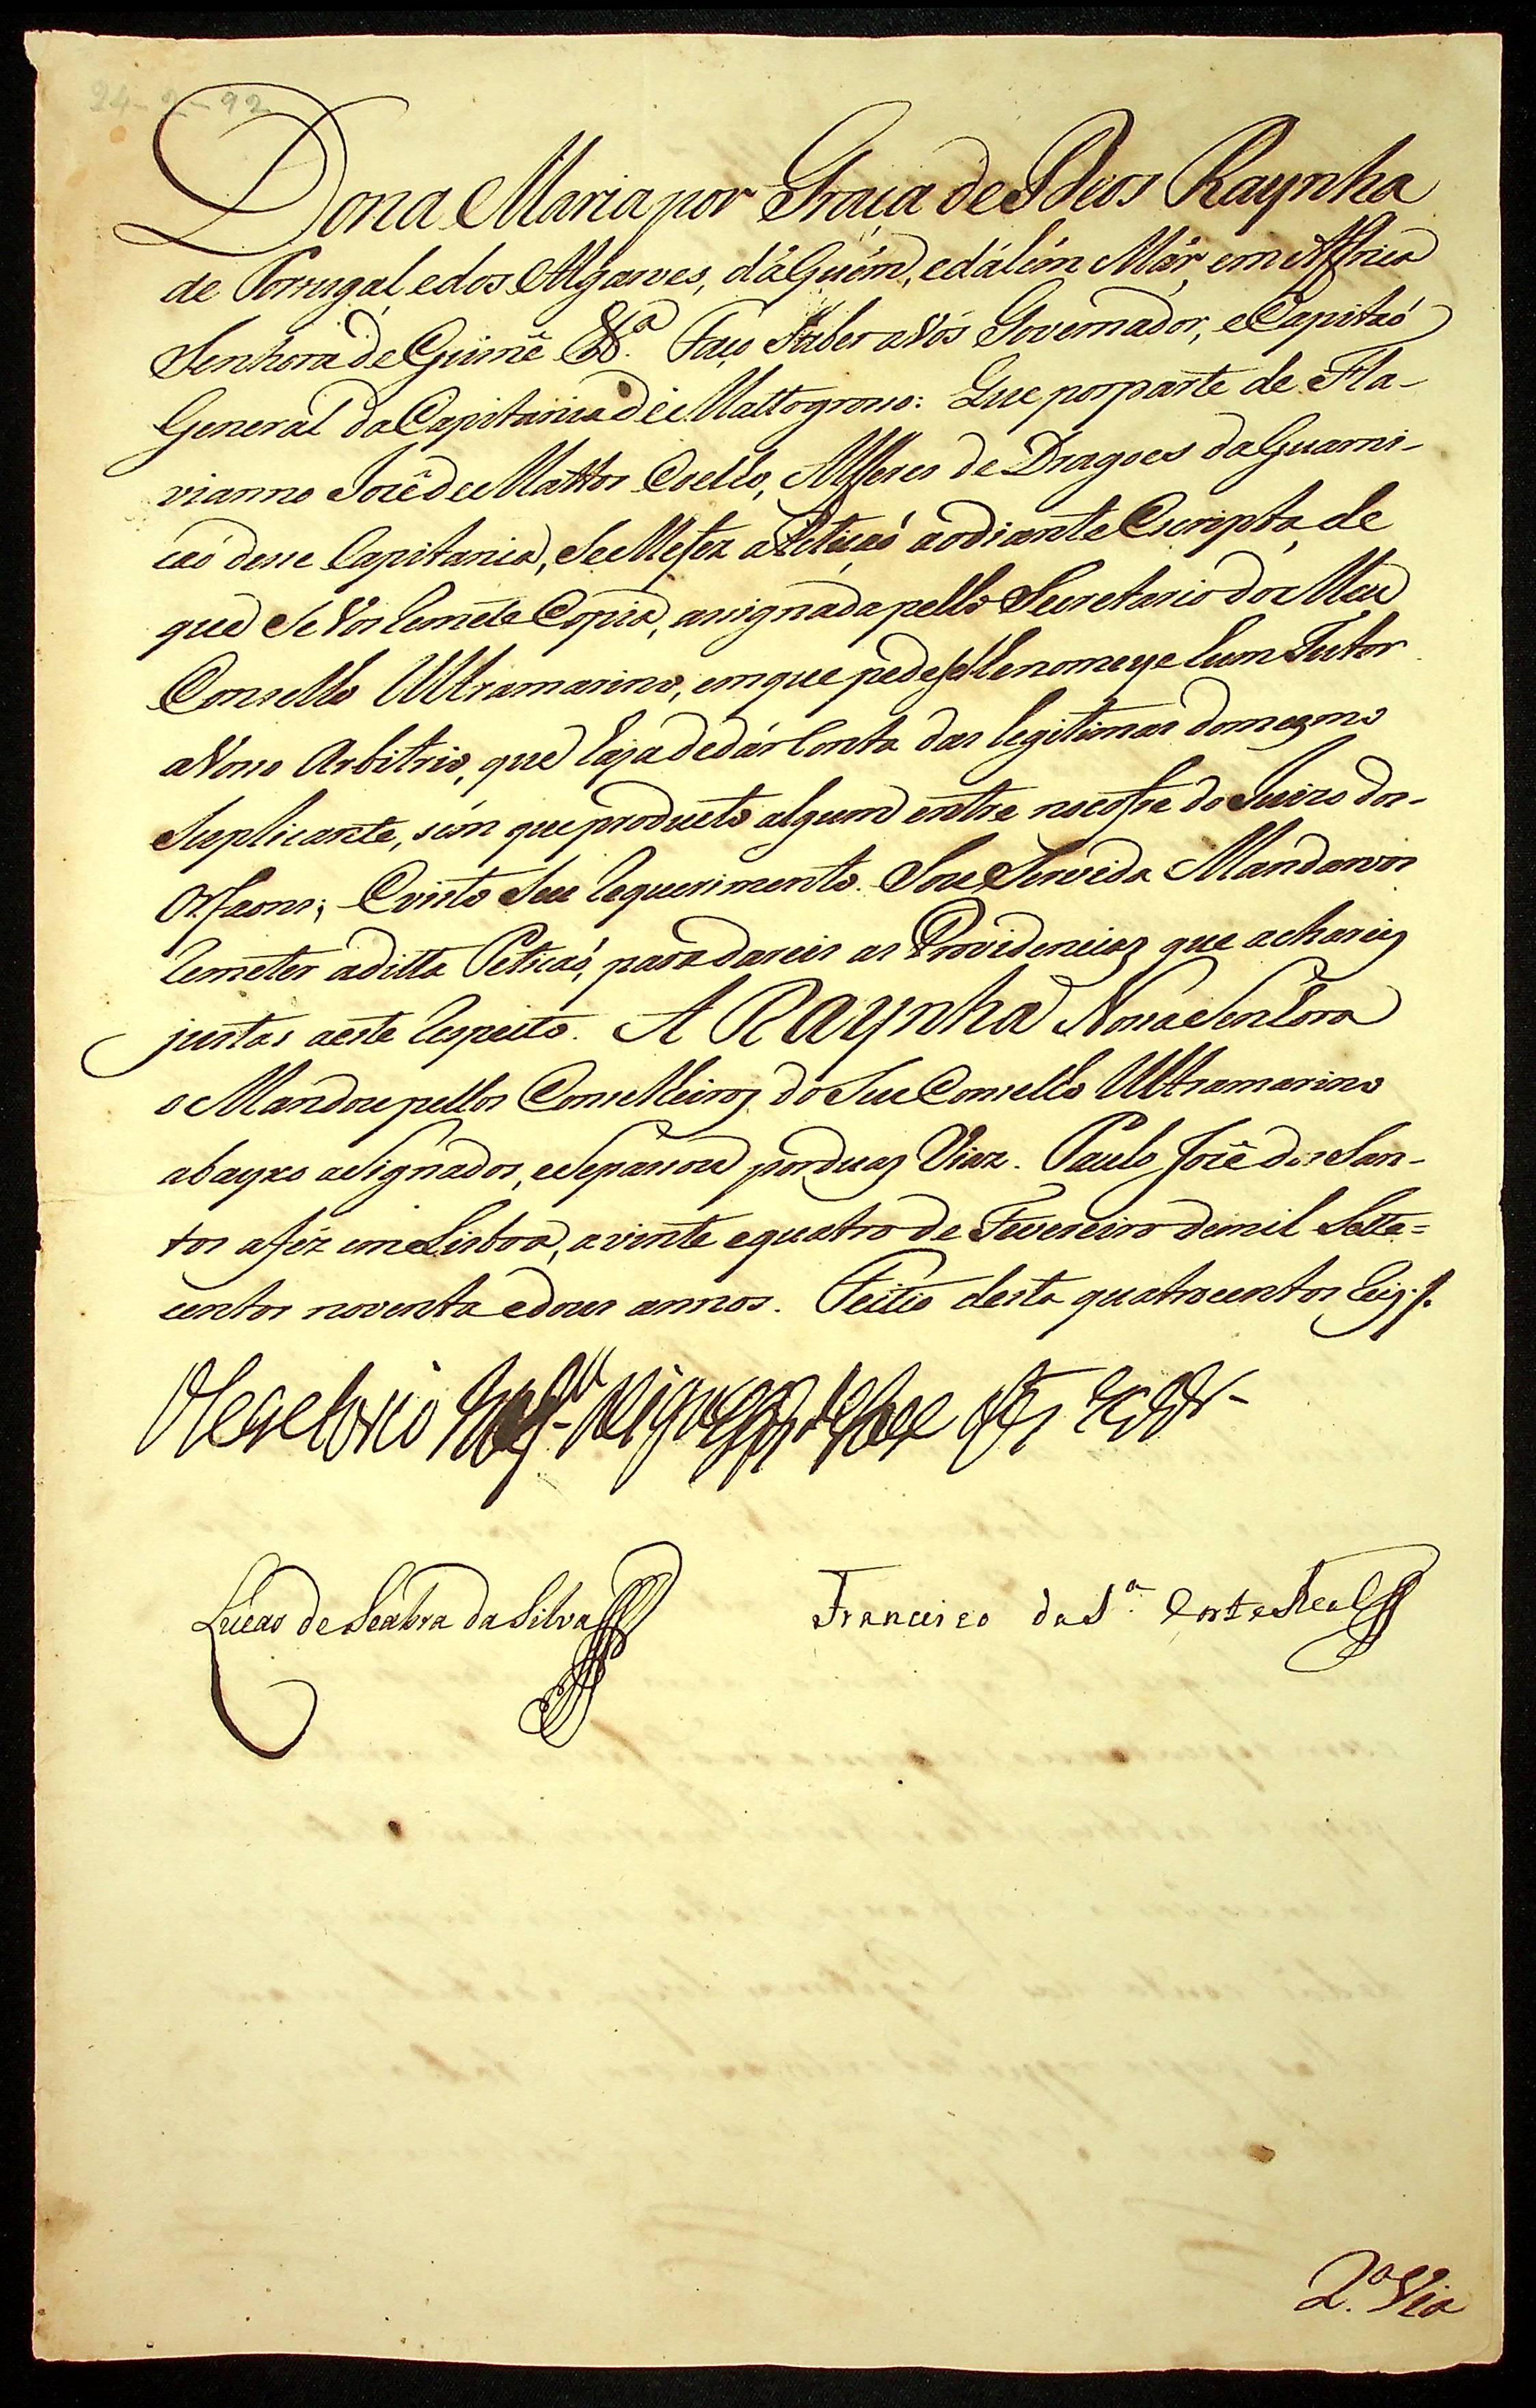 24-2-92
Dona Maria por Graça de Deos Raynha
de Portugal, e dos Algarves, dáquém, e dálém Már, em Affrica
Senhora de Guiné &ª. Faço Saber a Vós Governador, e Capitaõ
General da Capitania de Mattogrosso: Que por parte de Fla-
vianno José de Mattos Coelho, Alferes de Dragoes da Guarni-
çaõ desse Capitania, Se Me fez a Petiçaõ ao diante Escripta, de
que Se Vos remete Copia, assignada pello Secretario do Meu
Conselho Ultramarino, em que pede se lhe nomeye hum Tutor
a Vosso Arbitrio, que haja de dár Conta das legitimas do mezmo
Suplicante, sem que producto algum entre no cofre do Juizo dos
Orfaons; E visto Seu requerimento. Sou Servida Mandarvos
remeter a ditta Petiçaõ, para dareis as Providenciaz que achareiz
justas a este respeito. A Raynha Nossa Senhora
o Mandou pellos Conselheiroz do Seu Conselho Ultramarino
abayxo asignados, e Se passou por duaz Viaz. Paulo José dos San-
tos a féz em Lisboa, a vinte e quatro de Fevereiro de mil Sette=
centos noventa e dous annos. Feitio desta quatrocentos reiz.
Lucas de Seabra da Silva
Francisco da Sª. Corte Real
2.ª Via